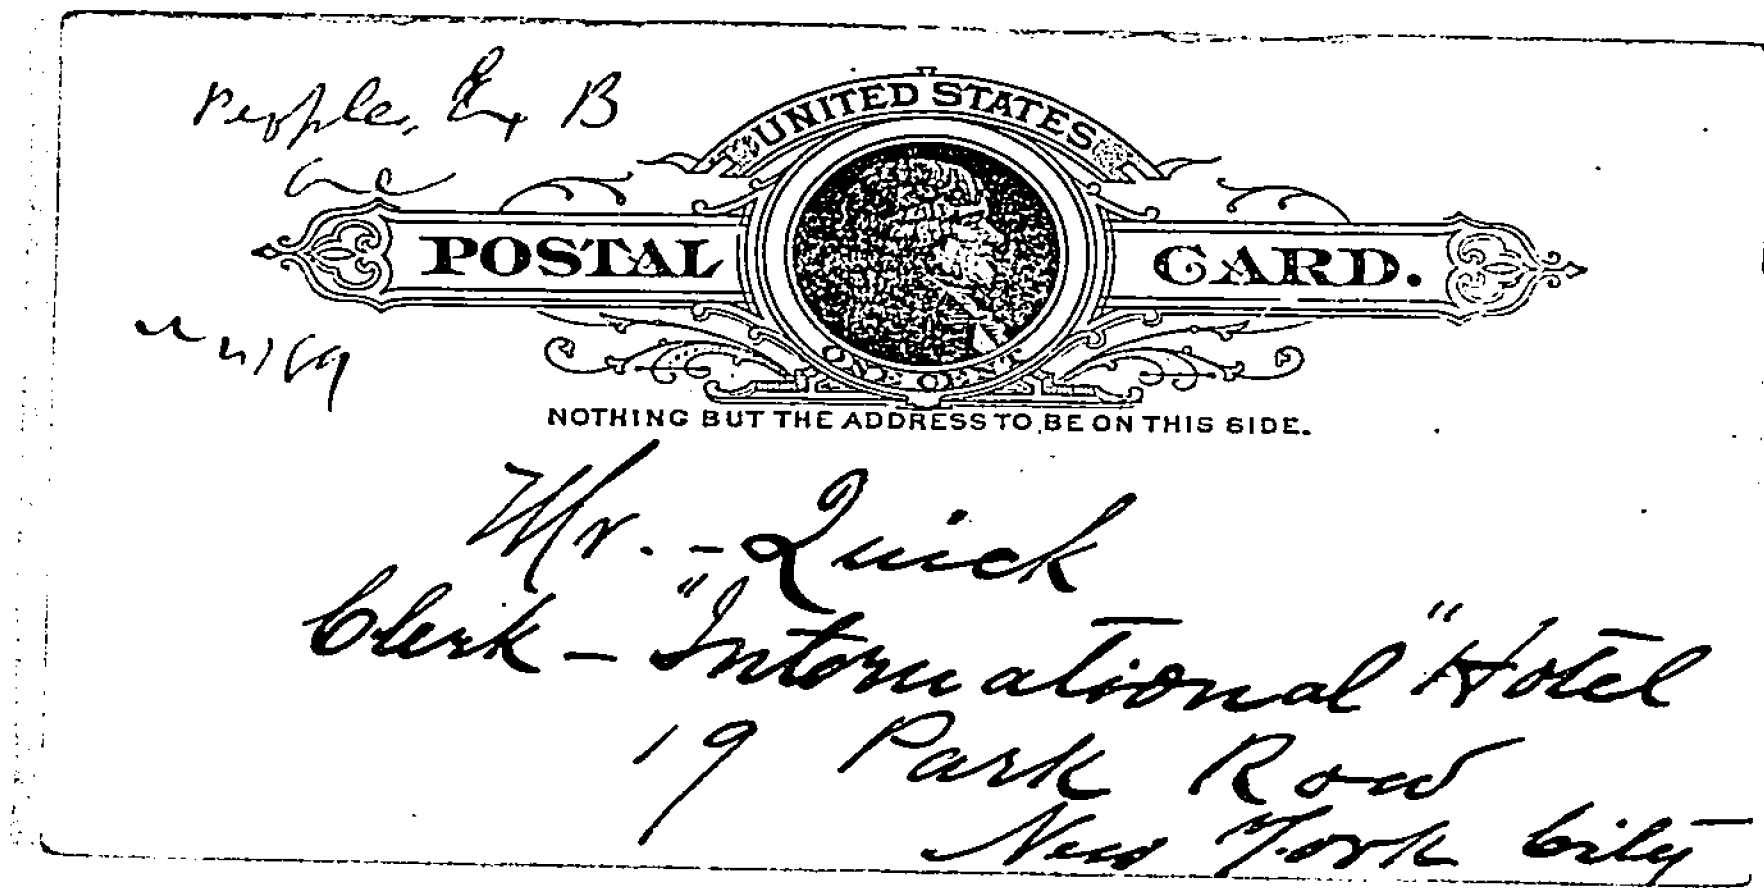 Peoples Ex B
UNITED STATES
POSTAL CARD.
ONE CENT
NOTHING BUT THE ADDRESS TO BE ON THIS SIDE.
Mr. - Quick
Clerk - "International" Hotel
19 Park Row
New York City